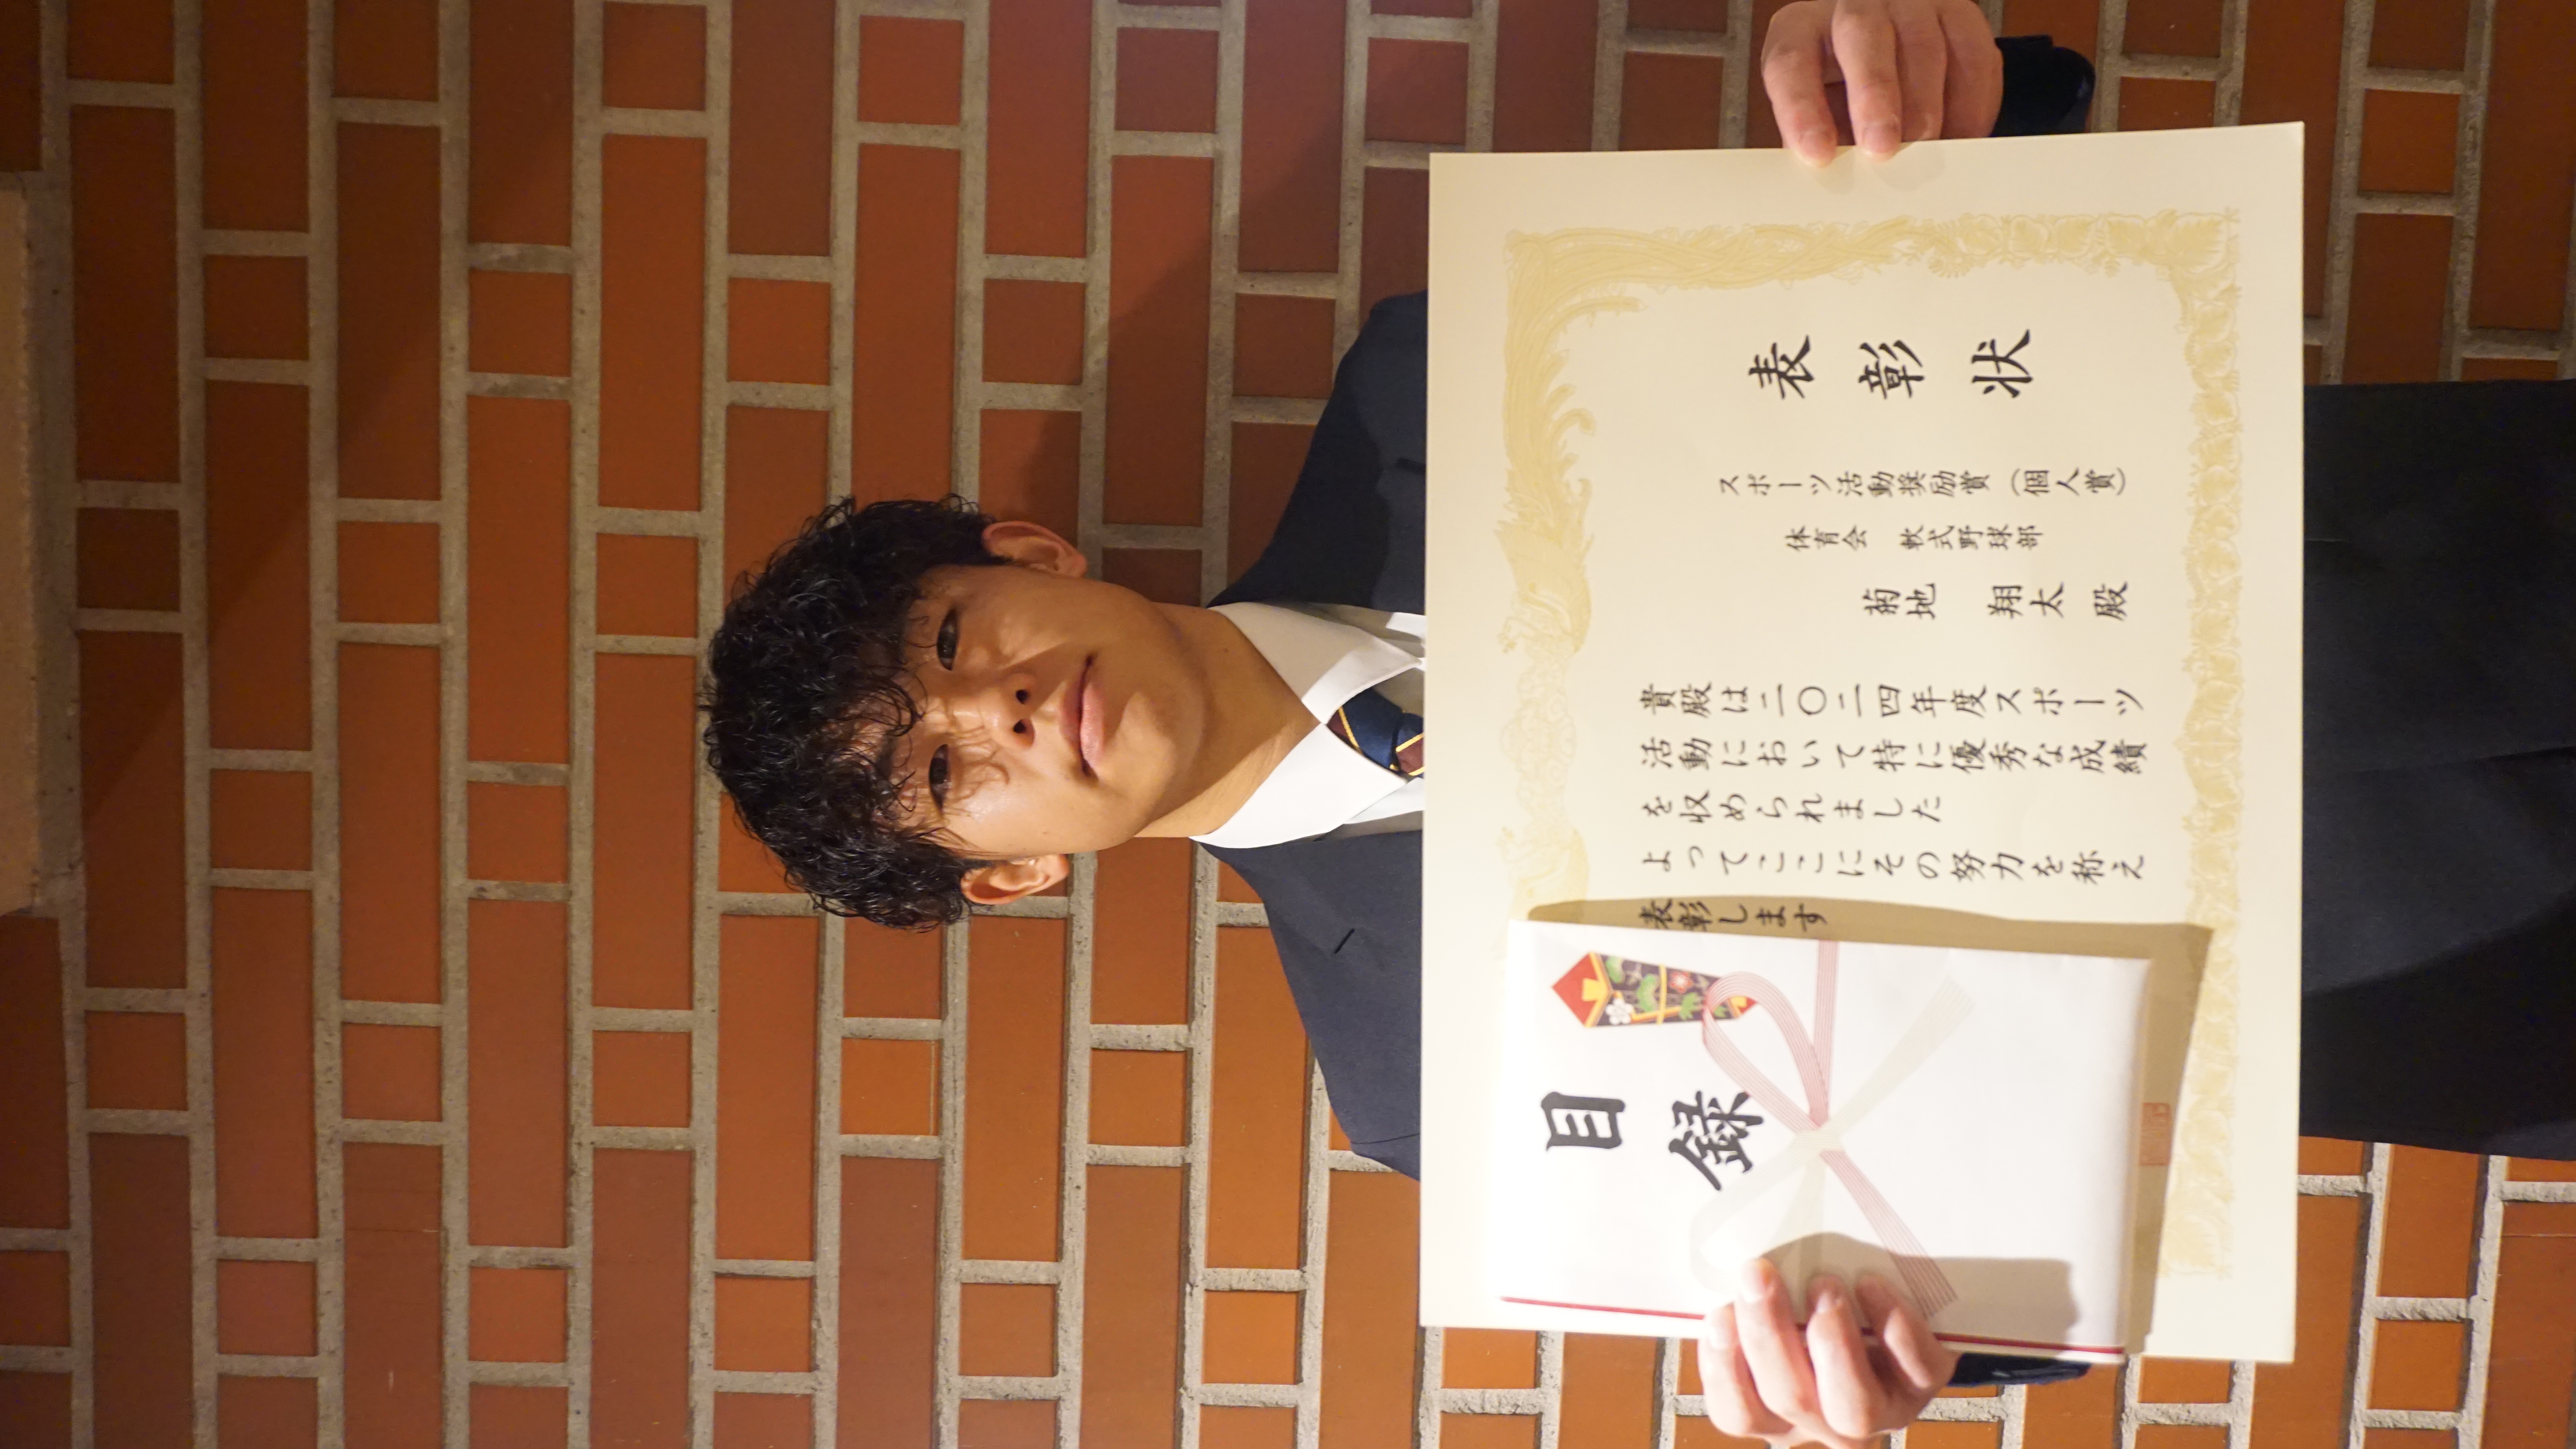 表彰状
スポーツ活動奨励賞（個人賞）
体育会　軟式野球部
菊地　翔太　殿
貴殿は二〇二四年度スポーツ
活動において特に優秀な成績
を収められました
よってここにその努力を称え
表彰します
目録